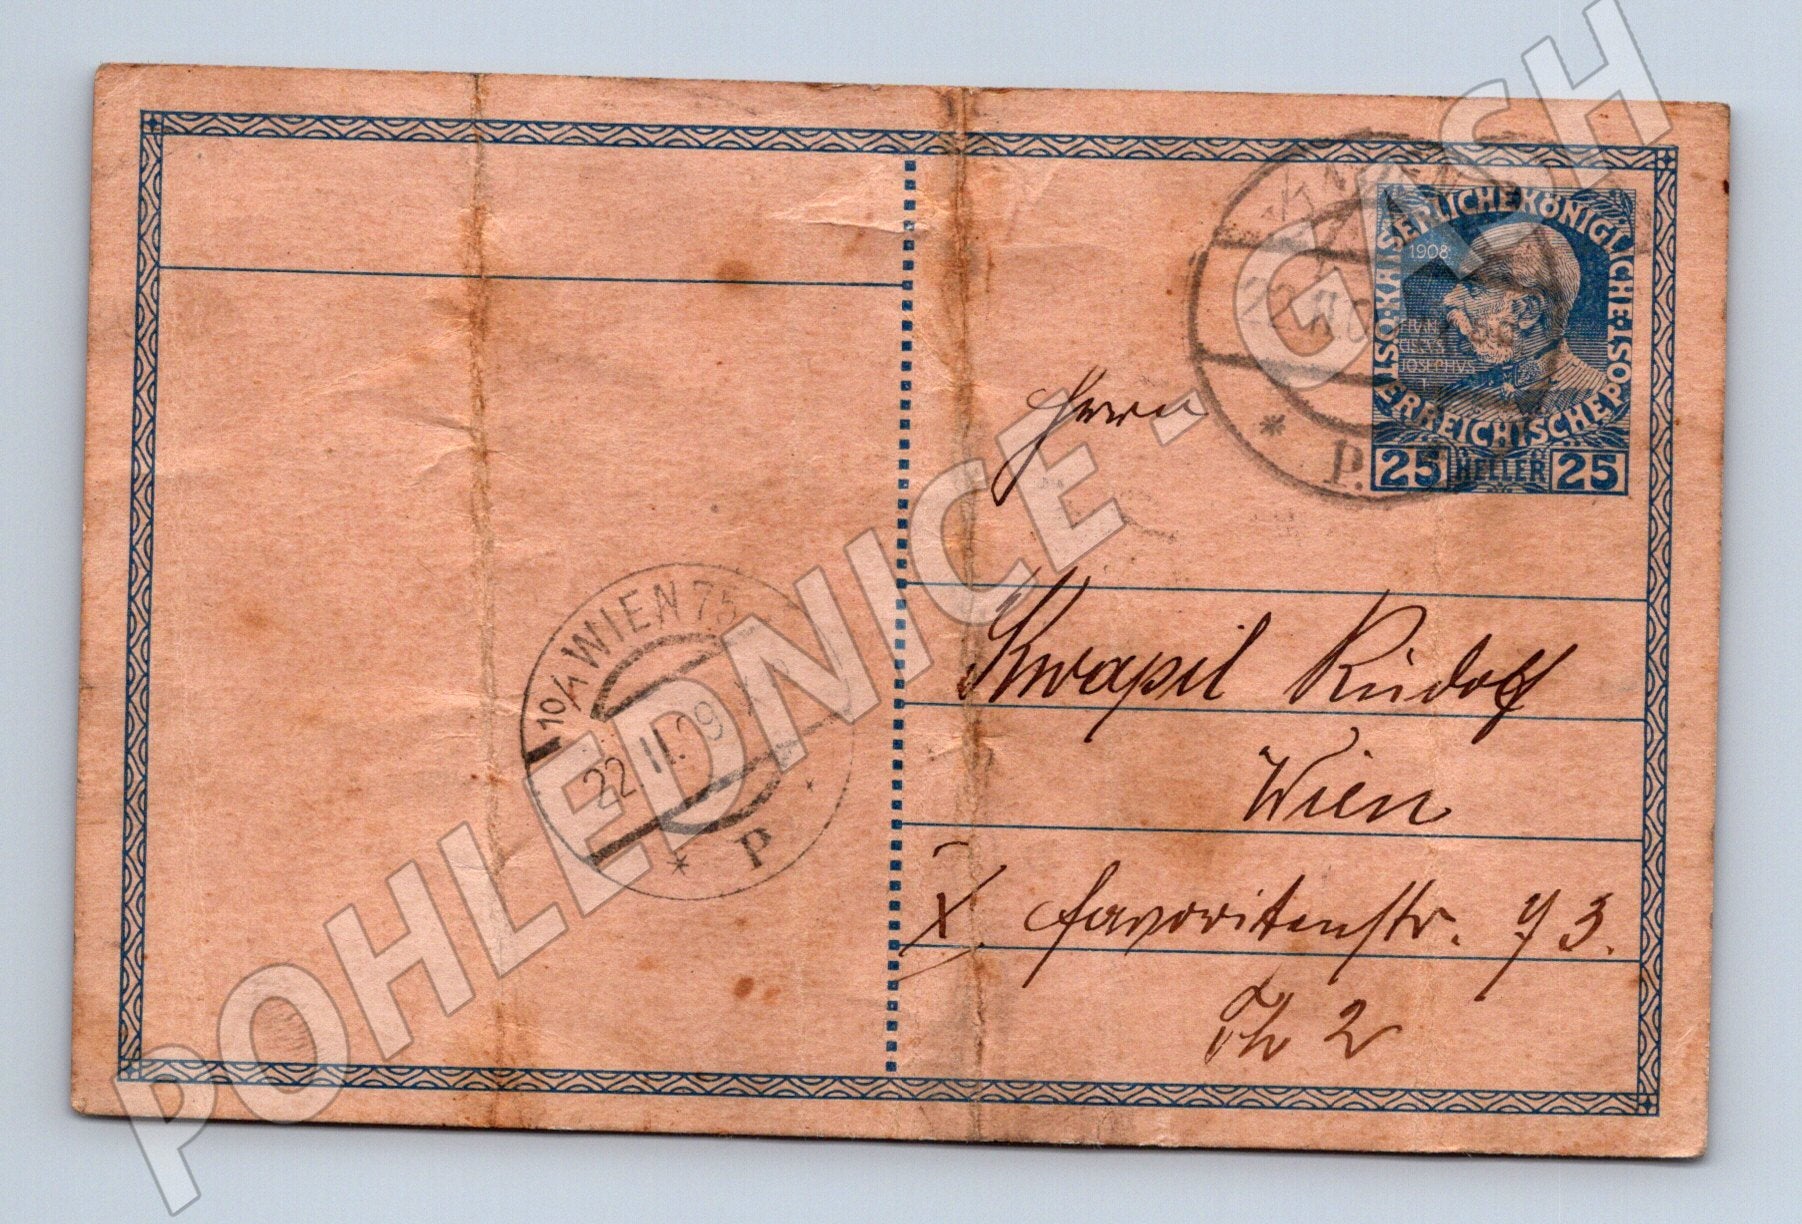 KAISERLICHE KÖNIGLICHE ÖSTERREICHISCHE POST
1908
JOSEPHVS
I
25 HELLER 25
* P.
Herrn
Kwapil Rudolf
Wien
X. Favoritenstr. 73.
Th 2
10/1 WIEN 75
22 II. 09
* P *
POHLEDNICE - CASH